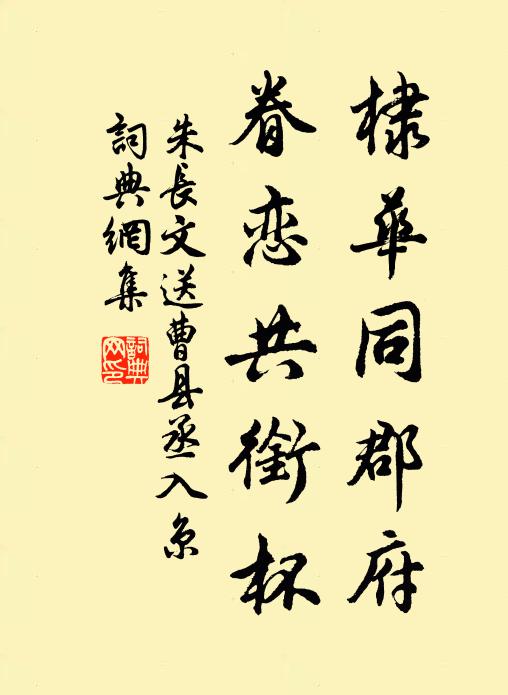 棣華同郡府
眷恋共銜杯
朱長文送曹县丞入京
詞典網集
詞典网印